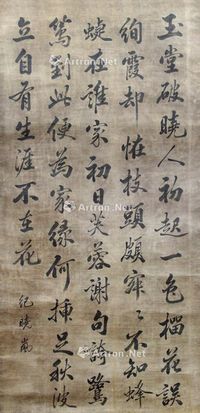 玉堂破曉人初起一色榴花誤
絢霞却怪枝頭頗寂〻不知蜂
蜨在誰家初日芙蓉謝句誇鷺
鷥對此便為家緣何插足秋波
立自有生涯不在花
紀曉嵐
Artron.Net